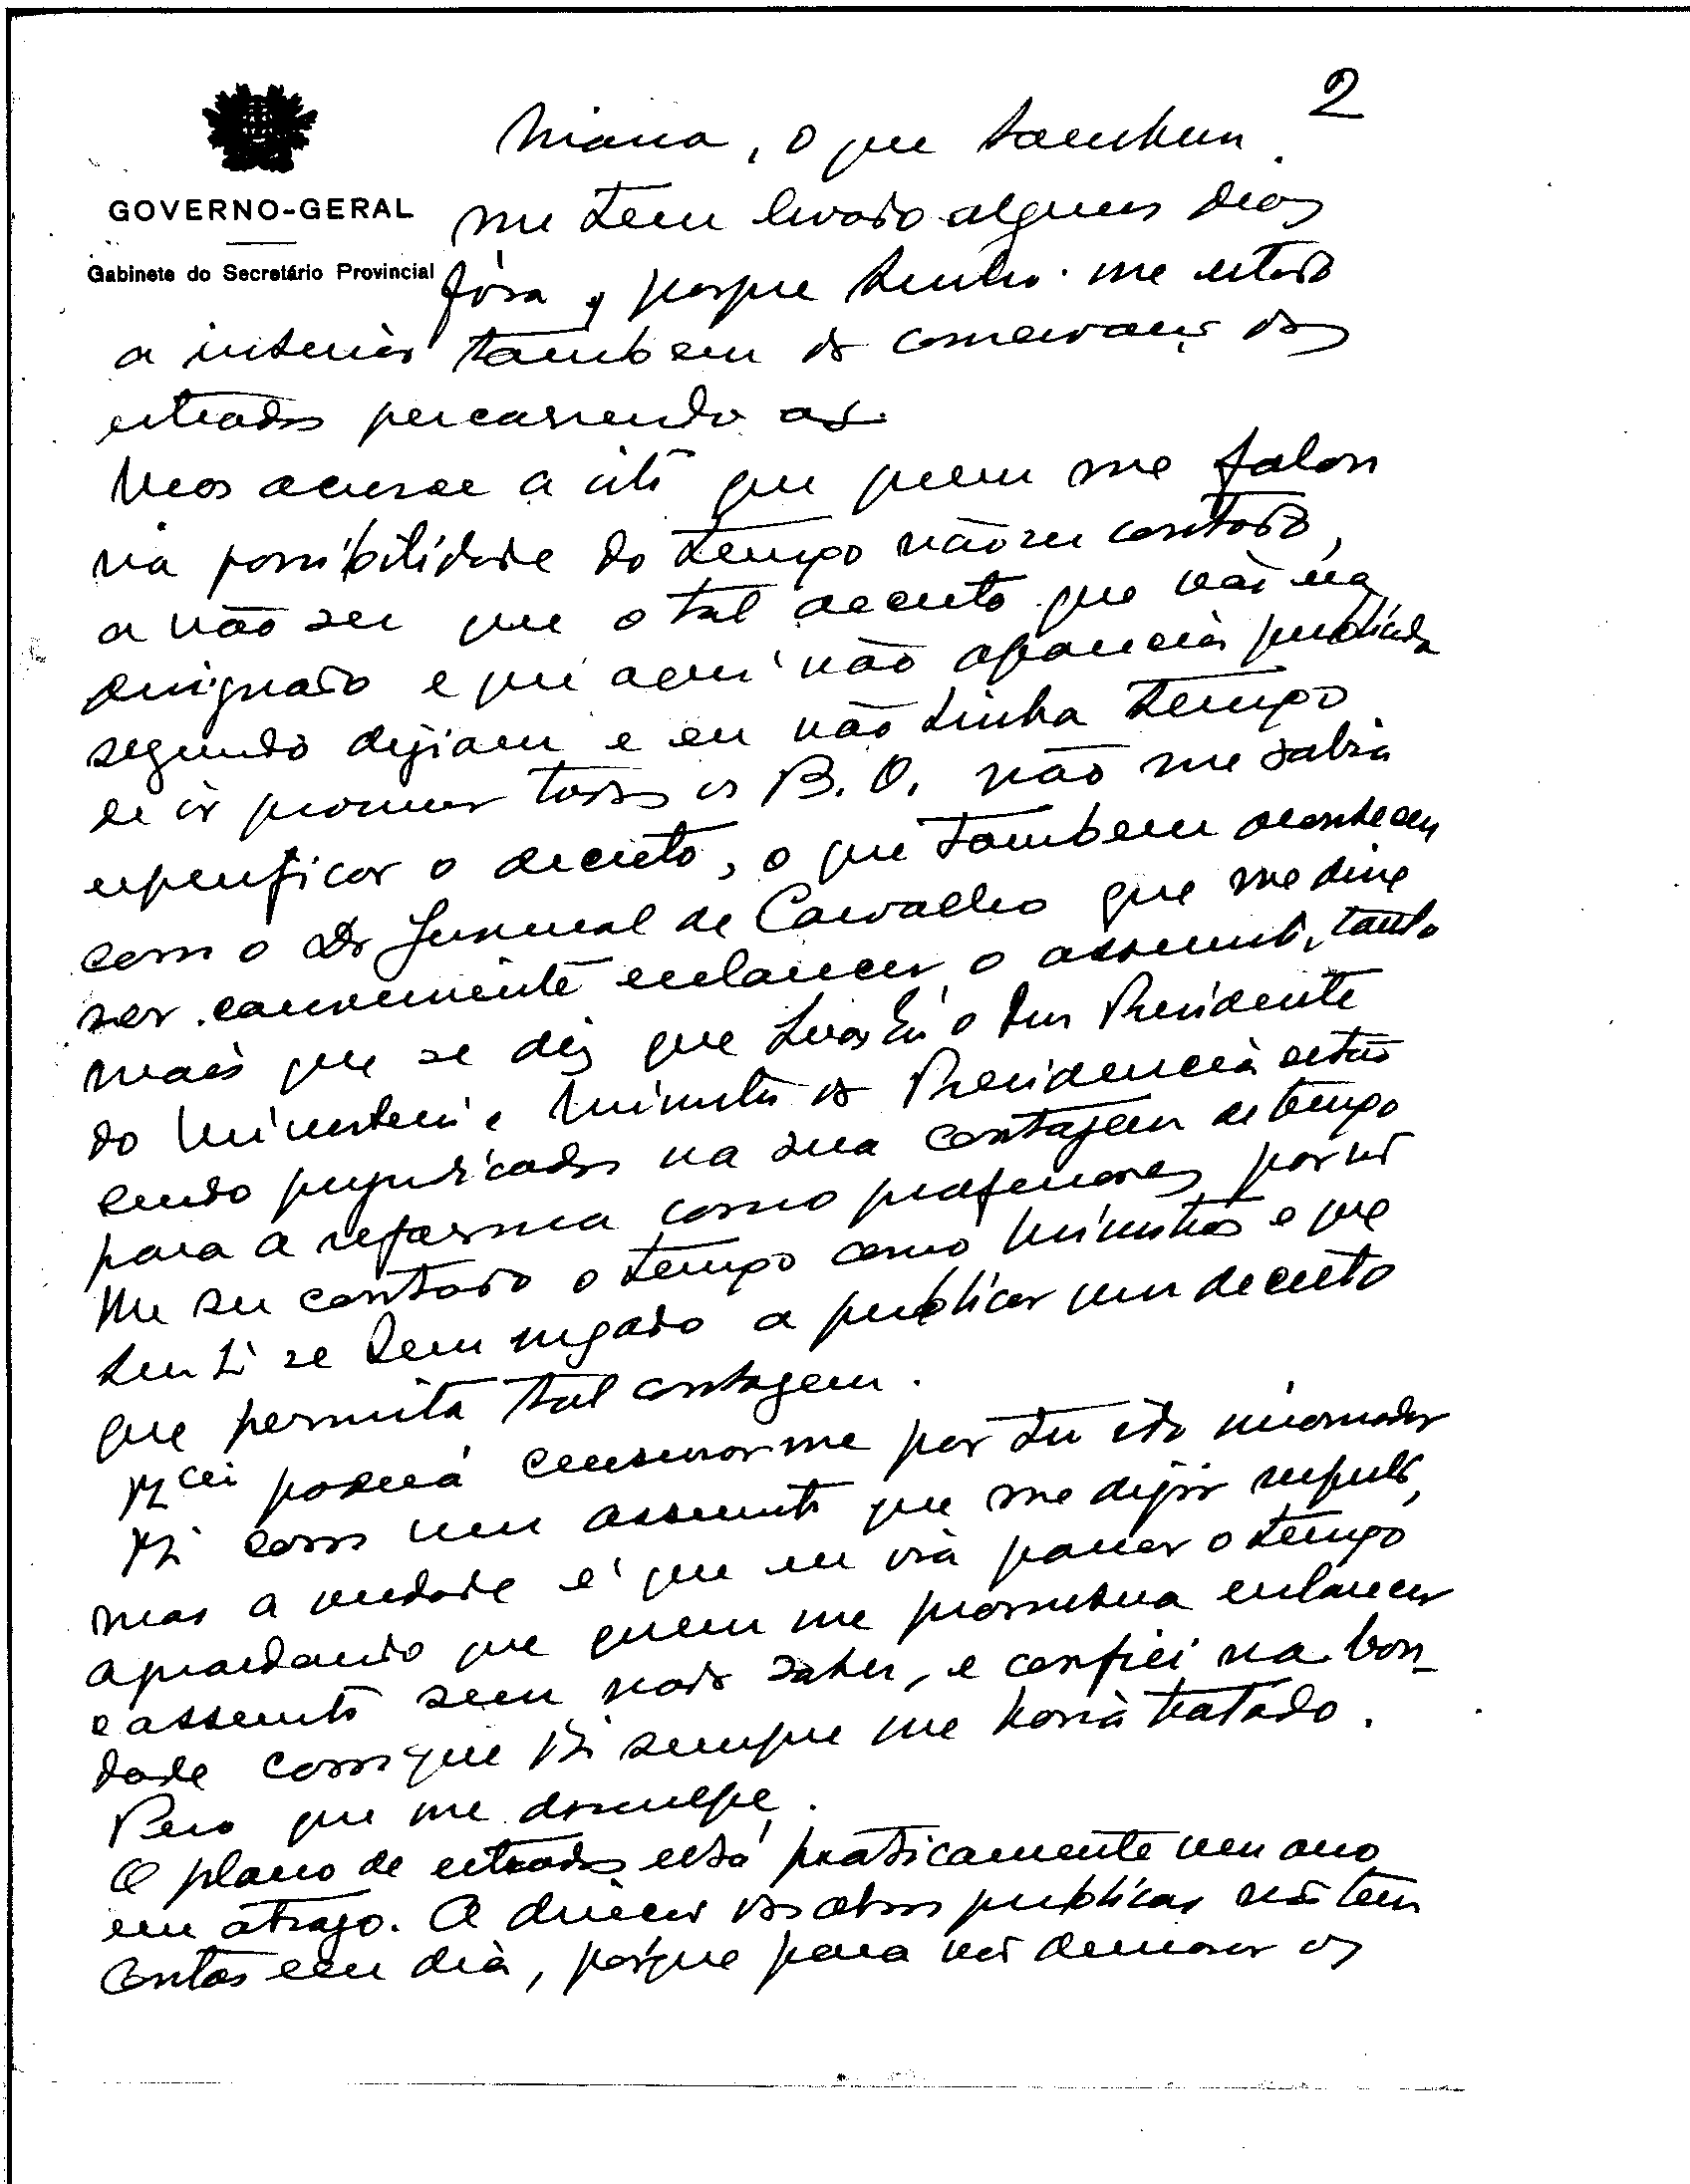 2
mana, o que tambem
GOVERNO-GERAL
me tem levado alguns dias
Gabinete do Secretário Provincial
fóra, porque tenho-me estado
a inteirar tambem da conservação das
estradas percorrendo-as.
Mas acresce a isto que quem me falou
na possibilidade do tempo não ser contado,
a não ser que o tal decreto que não era
designado e que aqui não aparecia publicado
segundo diziam e eu não tinha tempo
de ir procurar todos os B. O. não me sabia
especificar o decreto, o que tambem aconteceu
com o Dr Juvenal de Carvalho que me disse
ser conveniente esclarecer o assunto, tanto
mais que se diz que o Snr Presidente
do Ministerio e Ministro da Presidencia estão
sendo prejudicados na sua contagem de tempo
para a reforma como professores por não
lhe ser contado o tempo como Ministros e que
se tem negado a publicar um decreto
que permita tal contagem.
poderá censurar-me por ter ido
com um assunto que me dizia respeito,
mas a verdade é que eu via passar o tempo
aguardando que quem me prometera esclarecer
o assunto sem nada saber, e confiei na bon-
dade com que sempre me havia tratado.
Peço que me desculpe.
O plano de estradas está praticamente um ano
em atrazo. A direcção das obras publicas não tem
contas em dia, porque para não demorar os